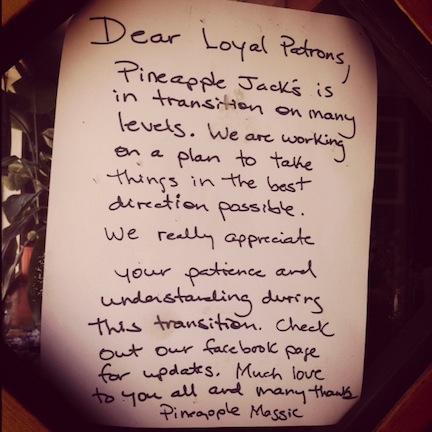 Dear Loyal Patrons,
Pineapple Jack's is
in transition on many
levels. We are working
on a plan to take
things in the best
direction possible.
We really appreciate
your patience and
understanding during
this transition. Check
out our facebook page
for updates. Much love
to you all and many thanks
Pineapple Massic